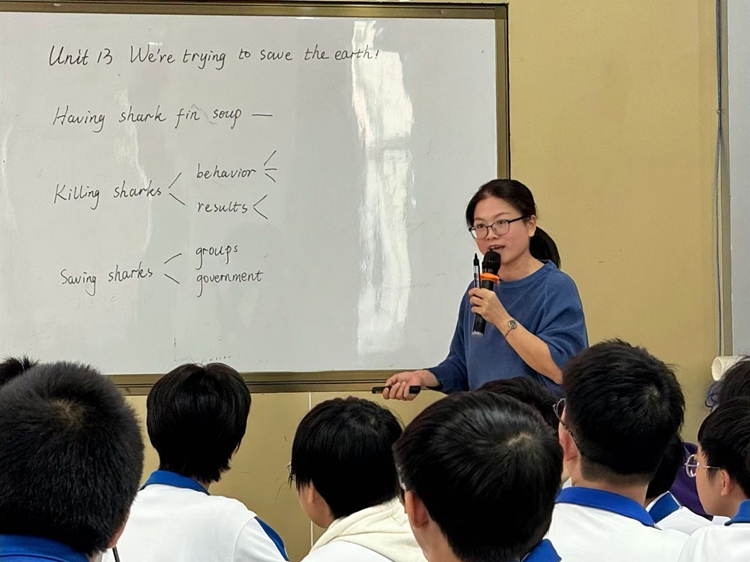 Unit 13 We're trying to save the earth!
Having shark fin soup —
Killing sharks
behavior
results
Saving sharks
groups
government